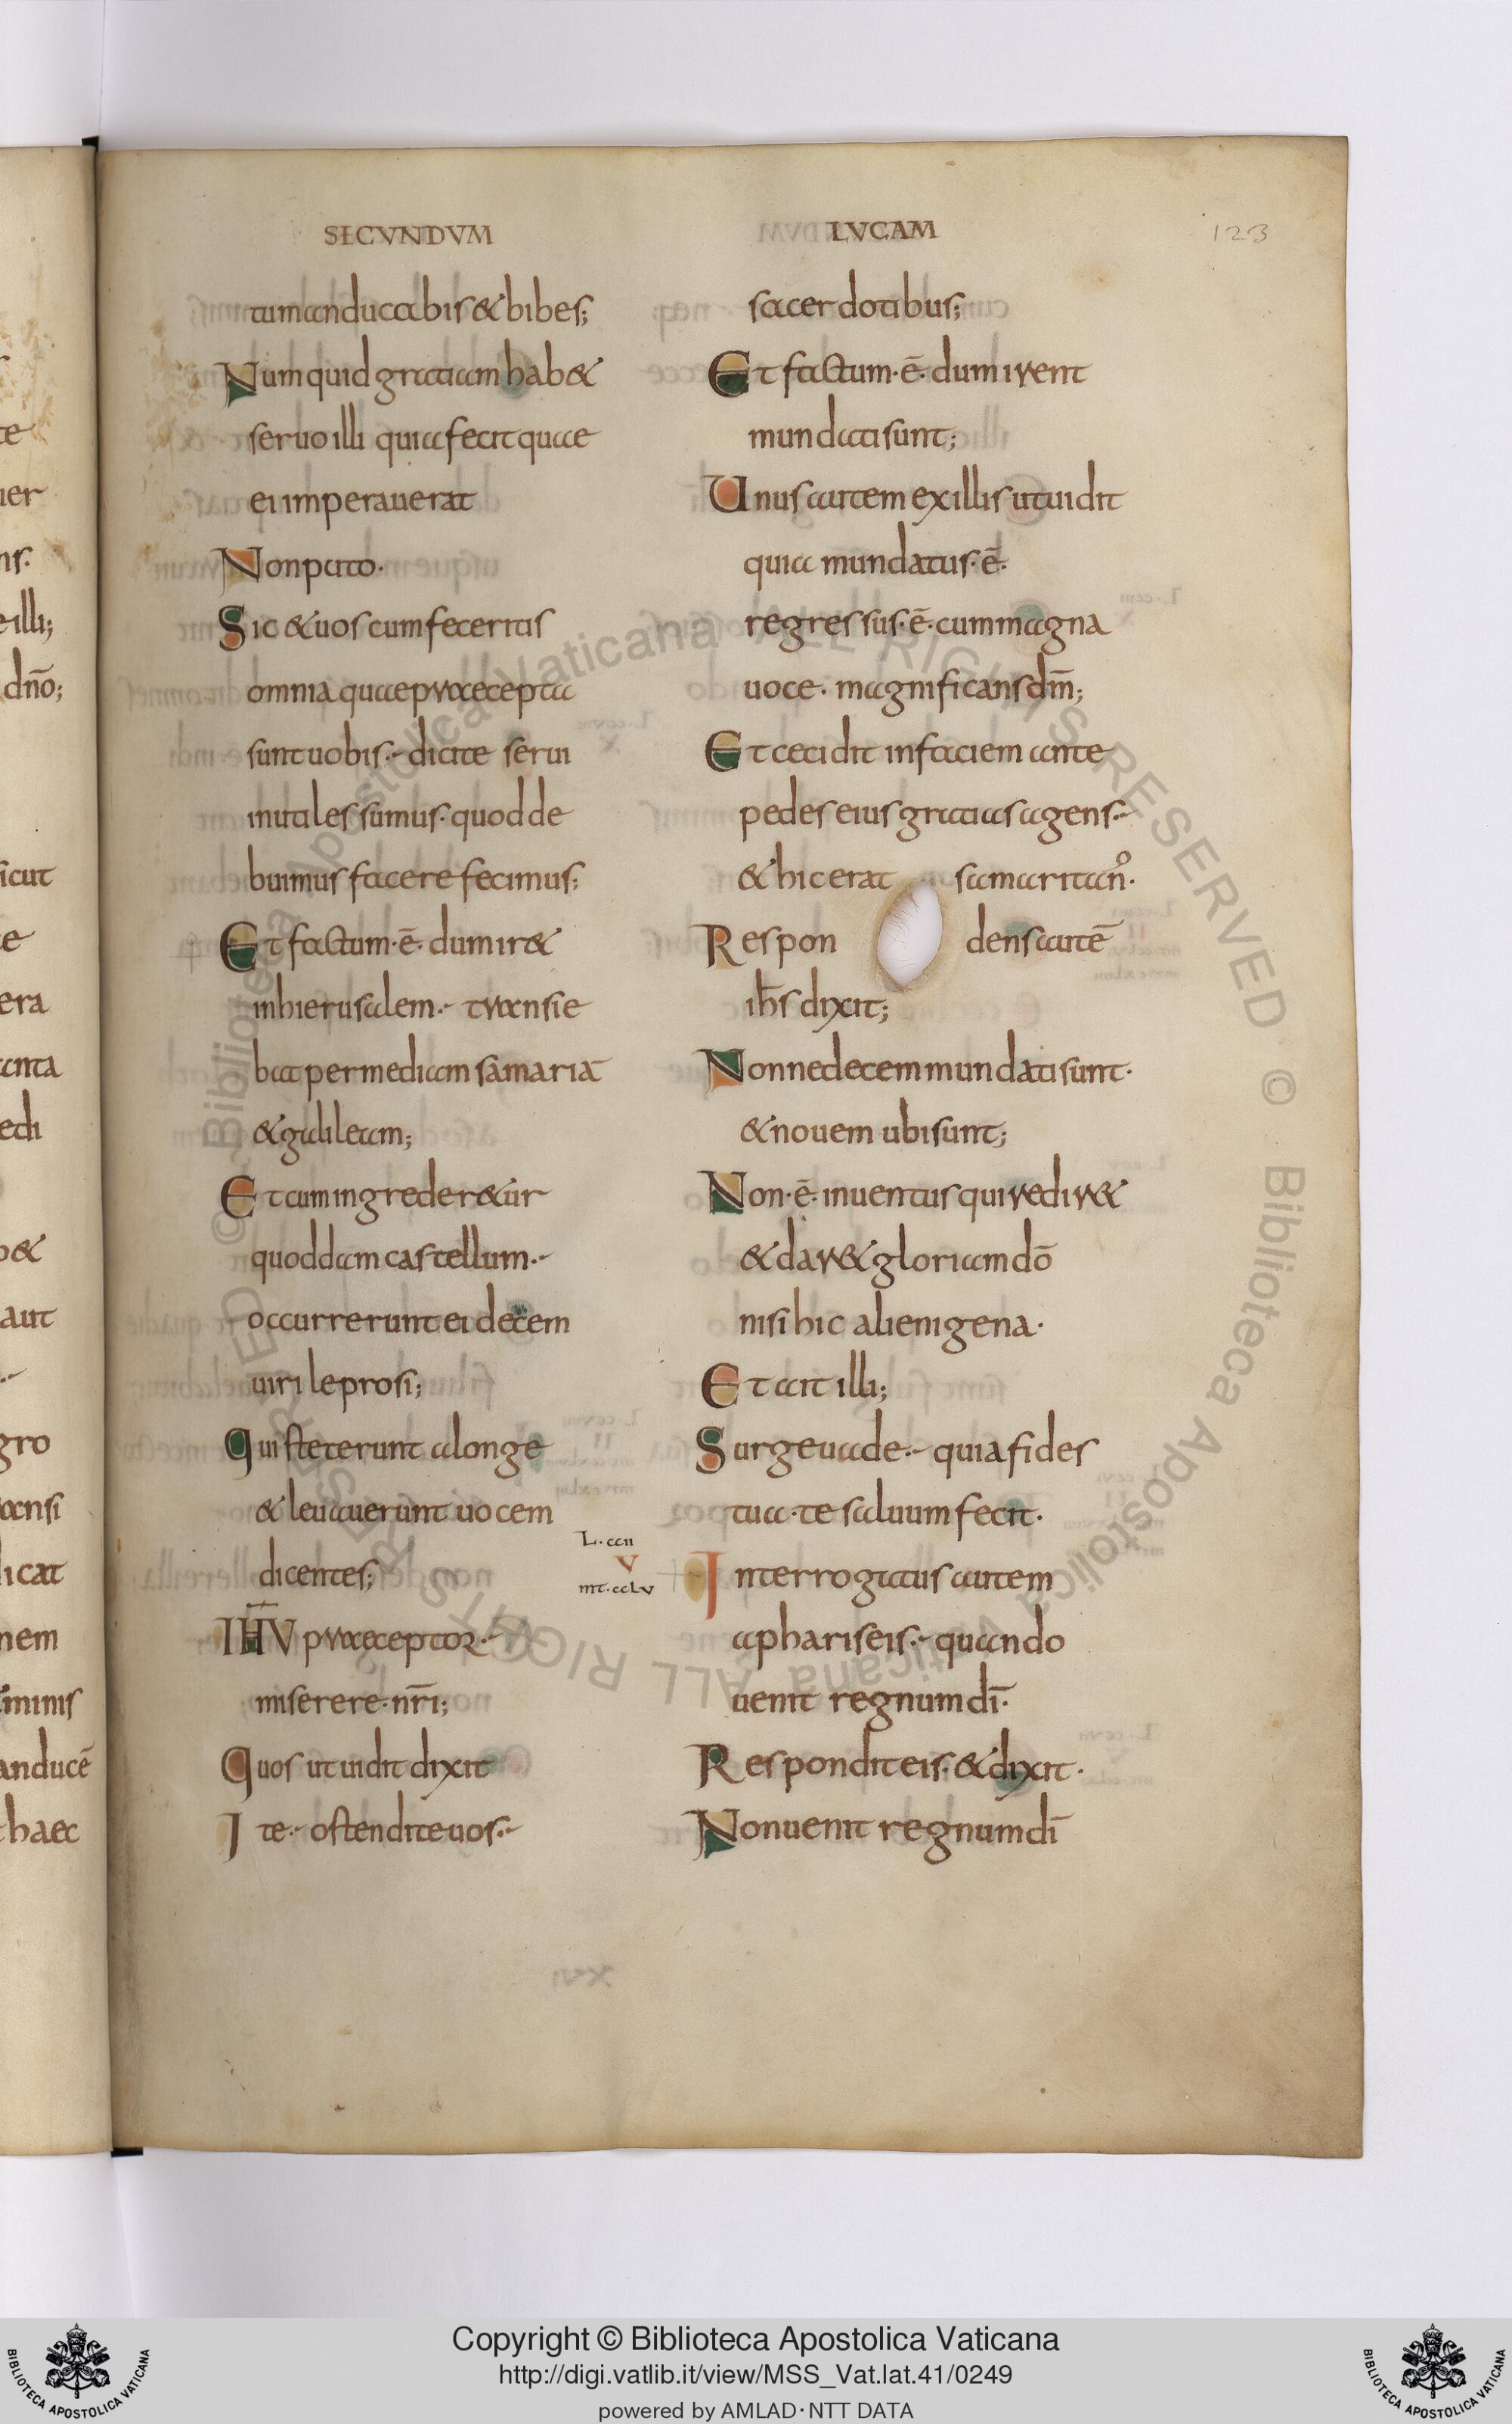 SECVNDVM
tu manducabis & bibes;
Numquid gratiam hab&
seruo illi quia fecit quae
ei imperauerat
Non puto·
Sic & uos cum feceritis
omnia quae praecepta
sunt uobis·- dicite serui
inutiles sumus· quod de
buimus facere fecimus;
Et factum·ē· dum ir&
in hierusalem·- transie
bat per mediam samariā
& galileam;
Et cum ingreder&ur
quoddam castellum·-
occurrerunt ei decem
uiri leprosi;
Qui steterunt alonge
& leuauerunt uocem
dicentes;
IHV praeceptor·-
miserere·nr̄i;
Quos ut uidit dixit
Ite·- ostendite uos·-
LVCAM
123
sacerdotibus;
Et factum·ē· dum irent
mundati sunt;
Unus autem ex illis ut uidit
quia mundatus·ē·
regressus·ē· cum magna
uoce· magnificans dm̄;
Et cecidit in faciem ante
pedes eius gratias agens·-
& hic erat samaritanº·
Respondens autē
ih̄s dixit;
Nonne decem mundati sunt·
& nouem ubi sunt;
Non·ē· inuentus qui redir&
& dar& gloriam dō
nisi hic alienigena·
Et ait illi;
Surge uade·- quia fides
tua·te saluum fecit·
L·ccii
V
mt·cclv
Interrogatus autem
aphariseis·- quando
uenit regnum dī·
Respondit eis· & dixit·
Non uenit regnum dī
Copyright © Biblioteca Apostolica Vaticana
http://digi.vatlib.it/view/MSS_Vat.lat.41/0249
powered by AMLAD·NTT DATA
BIBLIOTECA APOSTOLICA VATICANA
BIBLIOTECA APOSTOLICA VATICANA
© Biblioteca Apostolica Vaticana ALL RIGHTS RESERVED © Biblioteca Apostolica Vaticana ALL RIGHTS RESERVED